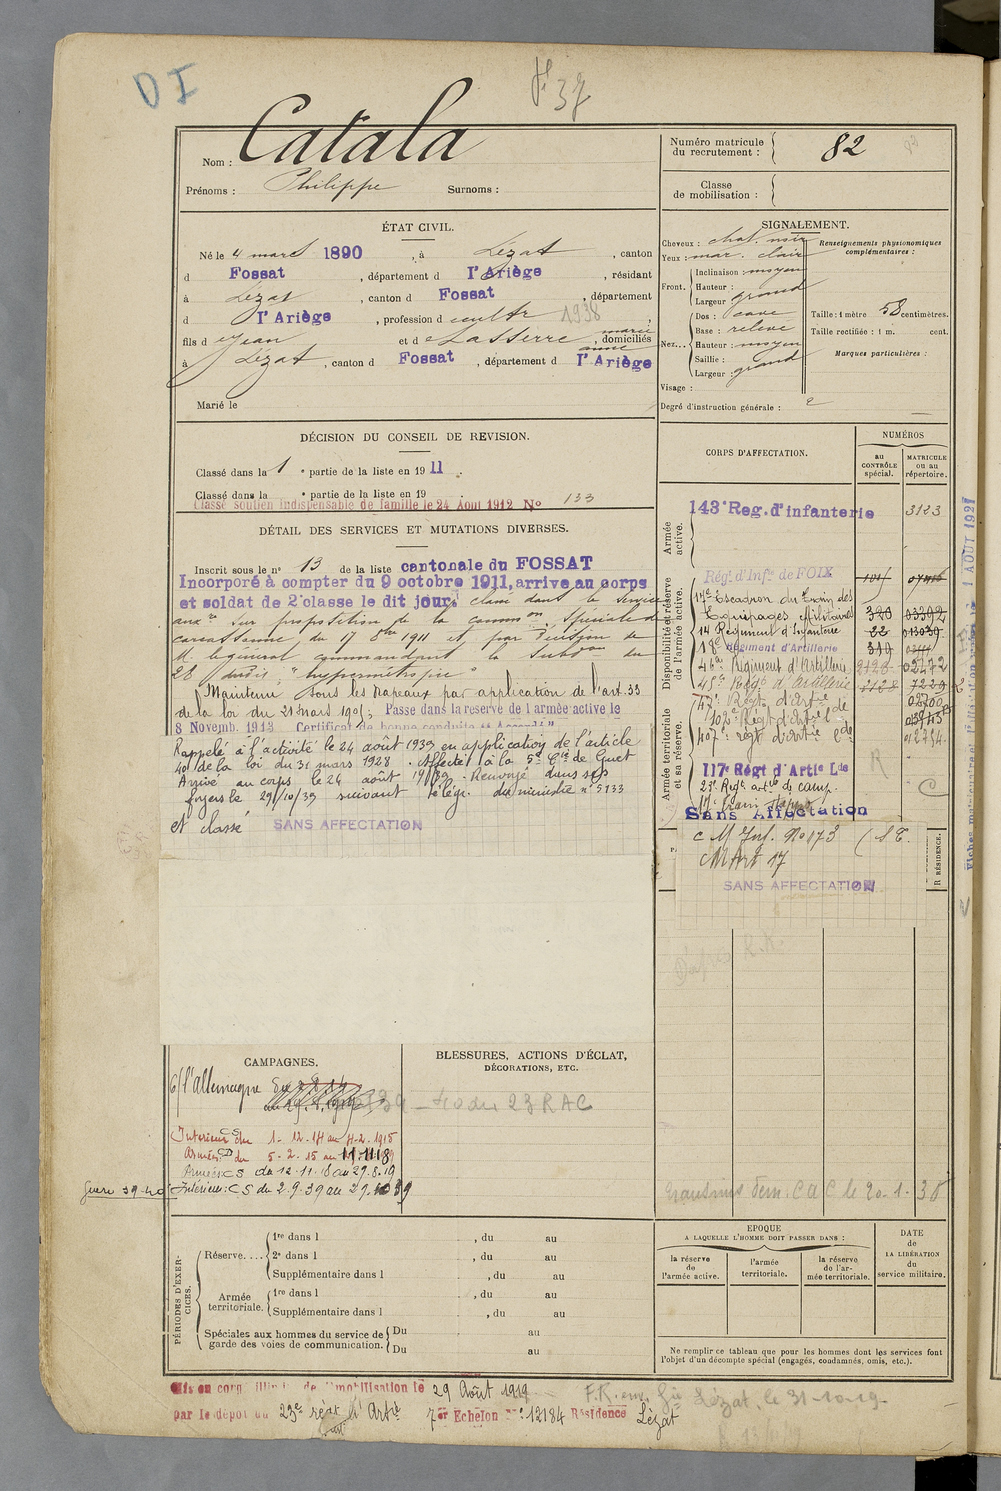 DI
37
Nom : Catala
Prénoms : Philippe Surnoms :
Numéro matricule
du recrutement : 82
Classe
de mobilisation :
ÉTAT CIVIL.
Né le 4 mars 1890, à Lézat, canton
d Fossat, département d l'Ariège, résidant
à Lézat, canton d Fossat, département
d l'Ariège, profession de cultr 1938
fils de Jean et de Lasserre marie anne, domiciliés
à Lézat, canton d Fossat, département d l'Ariège
Marié le
SIGNALEMENT.
Cheveux : chat. noir
Yeux : mar. clair
Front. Inclinaison : moyen
Hauteur :
Largeur : grand
Nez... Dos : cave
Base : relevé
Hauteur : moyen
Saillie :
Largeur : grand
Visage :
Renseignements physionomiques
complémentaires :
Taille : 1 mètre 58 centimètres.
Taille rectifiée : 1 m. cent.
Marques particulières :
Degré d'instruction générale : 2
DÉCISION DU CONSEIL DE REVISION.
Classé dans la 1e partie de la liste en 1911.
Classé dans la e partie de la liste en 19
Classé soutien indispensable de famille le 24 Aout 1912 No 133
DÉTAIL DES SERVICES ET MUTATIONS DIVERSES.
Inscrit sous le no 13 de la liste cantonale du FOSSAT
Incorporé à compter du 9 octobre 1911, arrive au corps
et soldat de 2e classe le dit jour. classé dans le service
auxre sur proposition de la common Spéciale de
carcassonne du 17 8bre 1911 et par Décision de
M. le général commandant la Subdon du
28 dudit, "hypermétropie"
Maintenu sous les drapeaux par application de l'art. 33
de la loi du 21 mars 1905; Passe dans la réserve de l'armée active le
8 Novemb. 1913 Certificat de bonne conduite "Accordé"
Rappelé à l'activité le 24 août 1939 en application de l'article
40 de la loi du 31 mars 1928. Affecté à la 5e Cie de Guet
Arrivé au corps le 24 août 1939. Renvoyé dans ses
foyers le 29/10/39 suivant télégr. du ministre no 5133
et classé SANS AFFECTATION
CORPS D'AFFECTATION.
NUMÉROS
au
CONTRÔLE
spécial.
MATRICULE
ou au
répertoire.
Armée
active.
143e Reg. d'infanterie 3123
Disponibilité et réserve
de l'armée active.
Régt d'Infie de FOIX
17e Escadron du Train des
Equipages Militaires 320 03392
14 Régiment d'Infanterie 22
18e Régiment d'Artillerie 319
46e Régiment d'Artillerie 2128 02472
45e Régt d'Artillerie 2128 7229
Armée territoriale
et sa réserve.
47e Régt d'Artie 02700
102e Régt d'Artie Lde
407e régt d'Artie Lde 012734
117e Régt d'Artie Lde
23e Régt artie de camp.
17e train
Sans Affectation
R
C
c M Inf. No 173 (S T.
CM Art 17
SANS AFFECTATION
R RÉSIDENCE.
1 AOUT 1927
CAMPAGNES.
C/ l'Allemagne
Intérieur CS du 1-12-14 au 4-2-1915
Armées CD du 5-2-15 au 11-11-18
Armées CS du 12.11.18 au 29.8.19
Guerre 39-40 Intérieur : CS du 2.9.39 au 29.10.39
BLESSURES, ACTIONS D'ÉCLAT,
DÉCORATIONS, ETC.
23 RAC
Transmis dem. CAC le 20-1-38
PÉRIODES D'EXERCICES.
Réserve.... 1re dans l , du au
2e dans l , du au
Supplémentaire dans l , du au
Armée
territoriale. 1re dans l , du au
Supplémentaire dans l , du au
Spéciales aux hommes du service de
garde des voies de communication. Du au
Du au
EPOQUE
A LAQUELLE L'HOMME DOIT PASSER DANS :
la réserve
de
l'armée active.
l'armée
territoriale.
la réserve
de l'ar-
mée territoriale.
DATE
de
LA LIBÉRATION
du
service militaire.
Ne remplir ce tableau que pour les hommes dont les services font
l'objet d'un décompte spécial (engagés, condamnés, omis, etc.).
Mis en congé illimité de démobilisation le 29 Août 1919
par le dépôt du 23e régt d'Artie 7er Echelon No 12184 Résidence Lézat
F.R. env. Gie Lézat, le 31-10-19